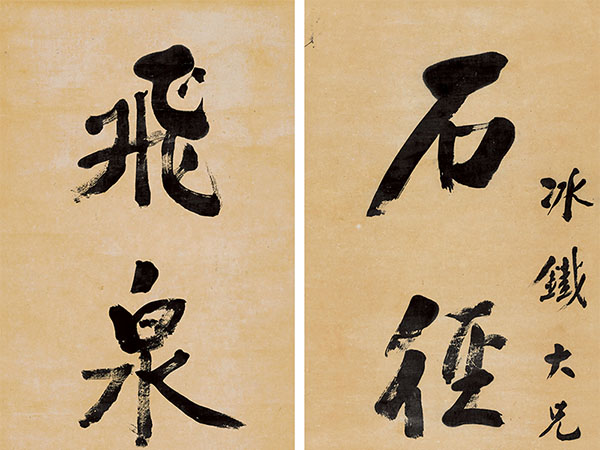 石径
冰鐵大兄
飛泉